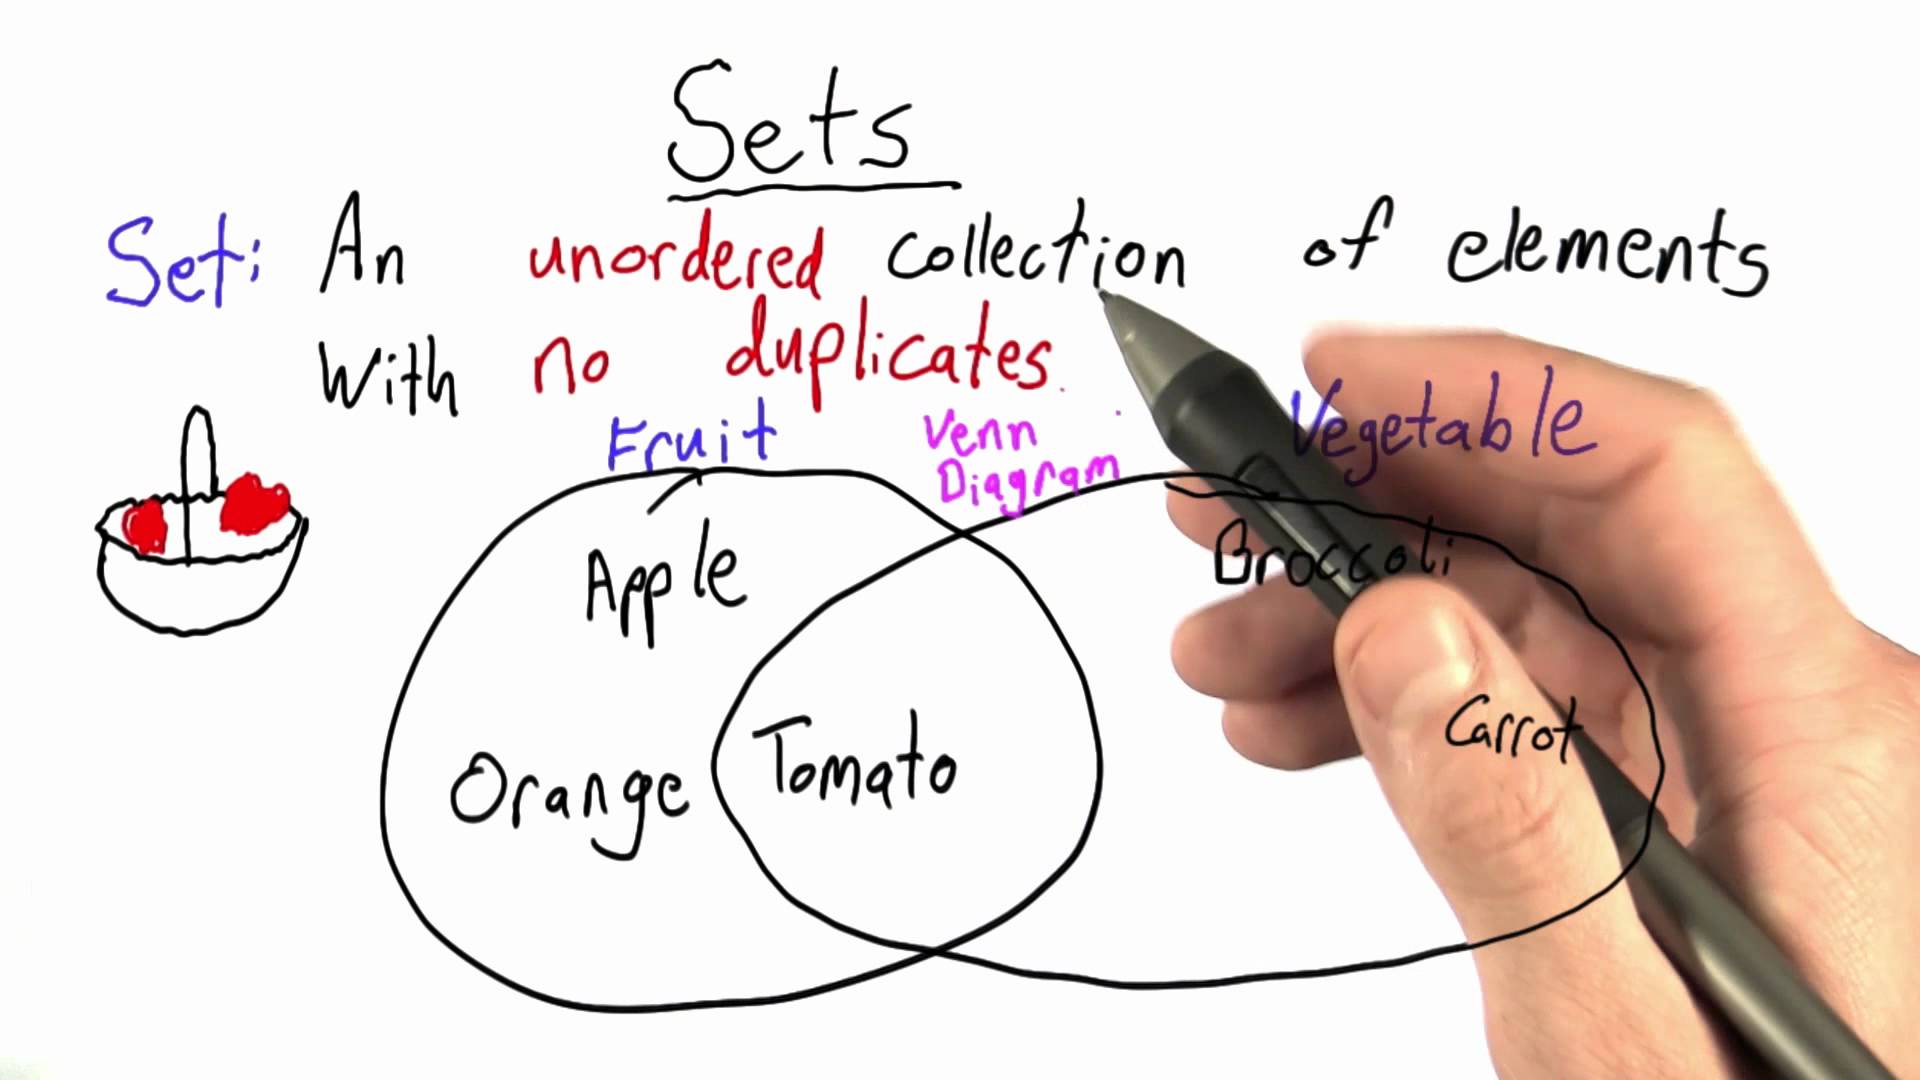 Sets
Set: An unordered collection of elements
With no duplicates.
Fruit
Venn
Diagram
Vegetable
Apple
Broccoli
Orange
Tomato
Carrot